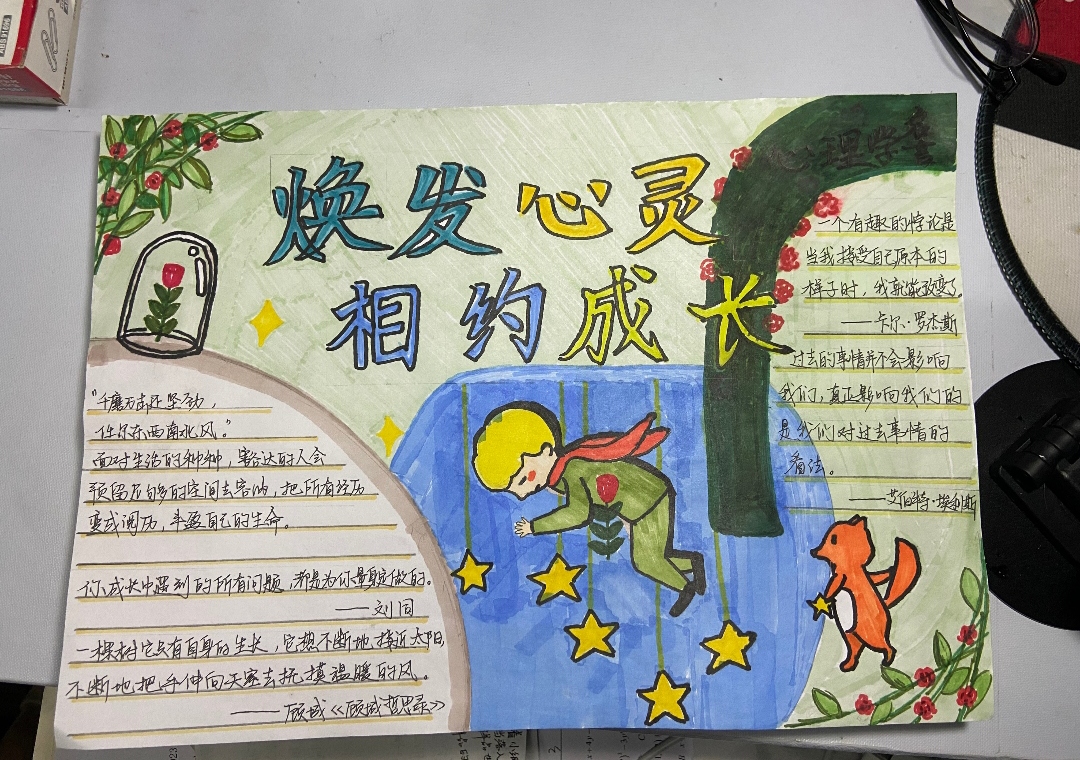 焕发心灵
相约成长
心理学堂
"千磨万击还坚劲，
任尔东西南北风。"
面对生活的种种，豁达的人会
预留足够的空间去容纳，把所有经历
变成阅历，丰盈自己的生命。
你成长中遇到的所有问题，都是为你量身定做的。
——刘同
一棵树它只有自身的生长，它想不断地接近太阳，
不断地把手伸向天空去抚摸温暖的风。
——顾城《顾城哲思录》
一个有趣的悖论是
当我接受自己原本的
样子时，我就能改变了。
——卡尔·罗杰斯
过去的事情并不会影响
我们，真正影响我们的
是我们对过去事情的
看法。
——艾伯特·埃利斯